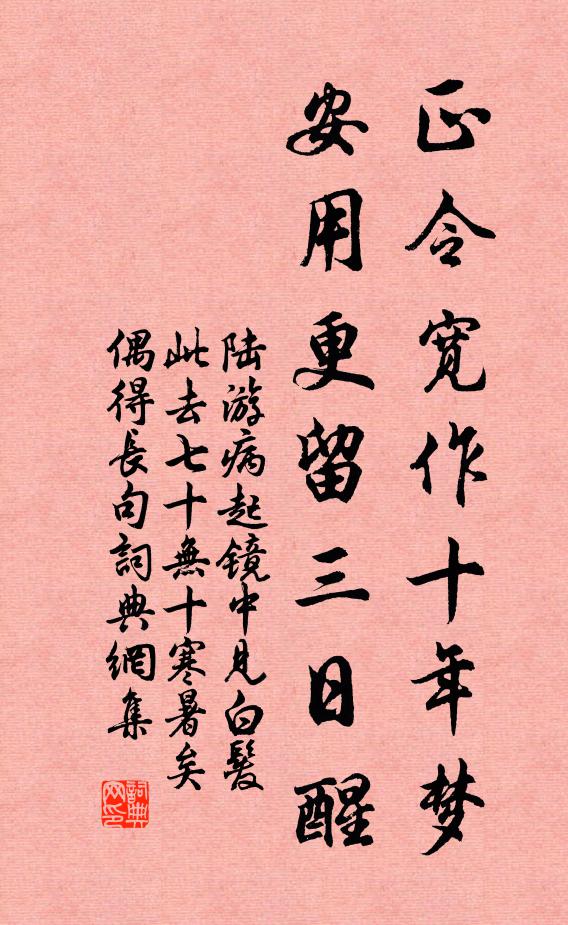 正令寛作十年梦
安用更留三日醒
陆游病起镜中見白髮
此去七十無十寒暑矣
偶得長句詞典網集
詞典
网印